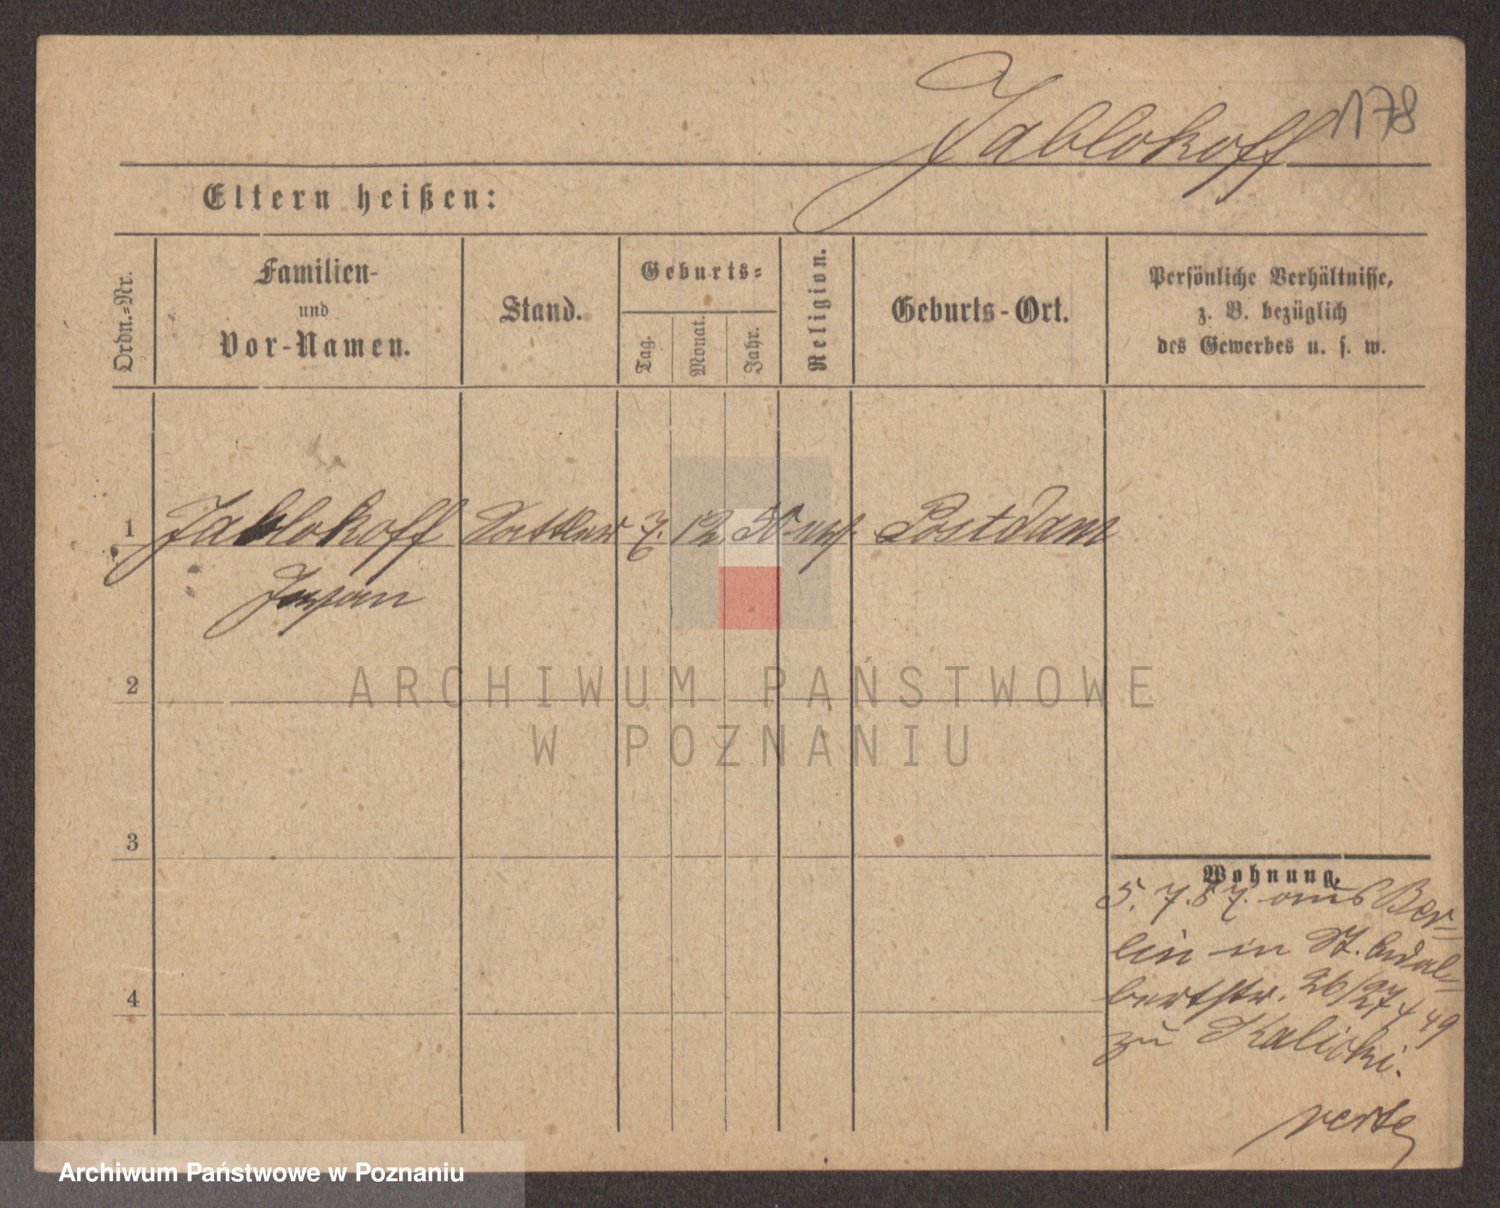 Jablokoff
178
Eltern heißen:
Ordn.-Nr.
Familien-
und
Vor-Namen.
Stand.
Geburts-
Tag.
Monat.
Jahr.
Religion.
Geburts-Ort.
Persönliche Verhältnisse,
z. B. bezüglich
des Gewerbes u. s. w.
1 Jablokoff Sattler 7. 12. 50 Postdam
2
3
4
Wohnung.
5. 7. 87. aus Ber-
lin in St. Adal-
bertstr. 26/27
zu Kalicki.
verte
ARCHIWUM PAŃSTWOWE
W POZNANIU
Archiwum Państwowe w Poznaniu